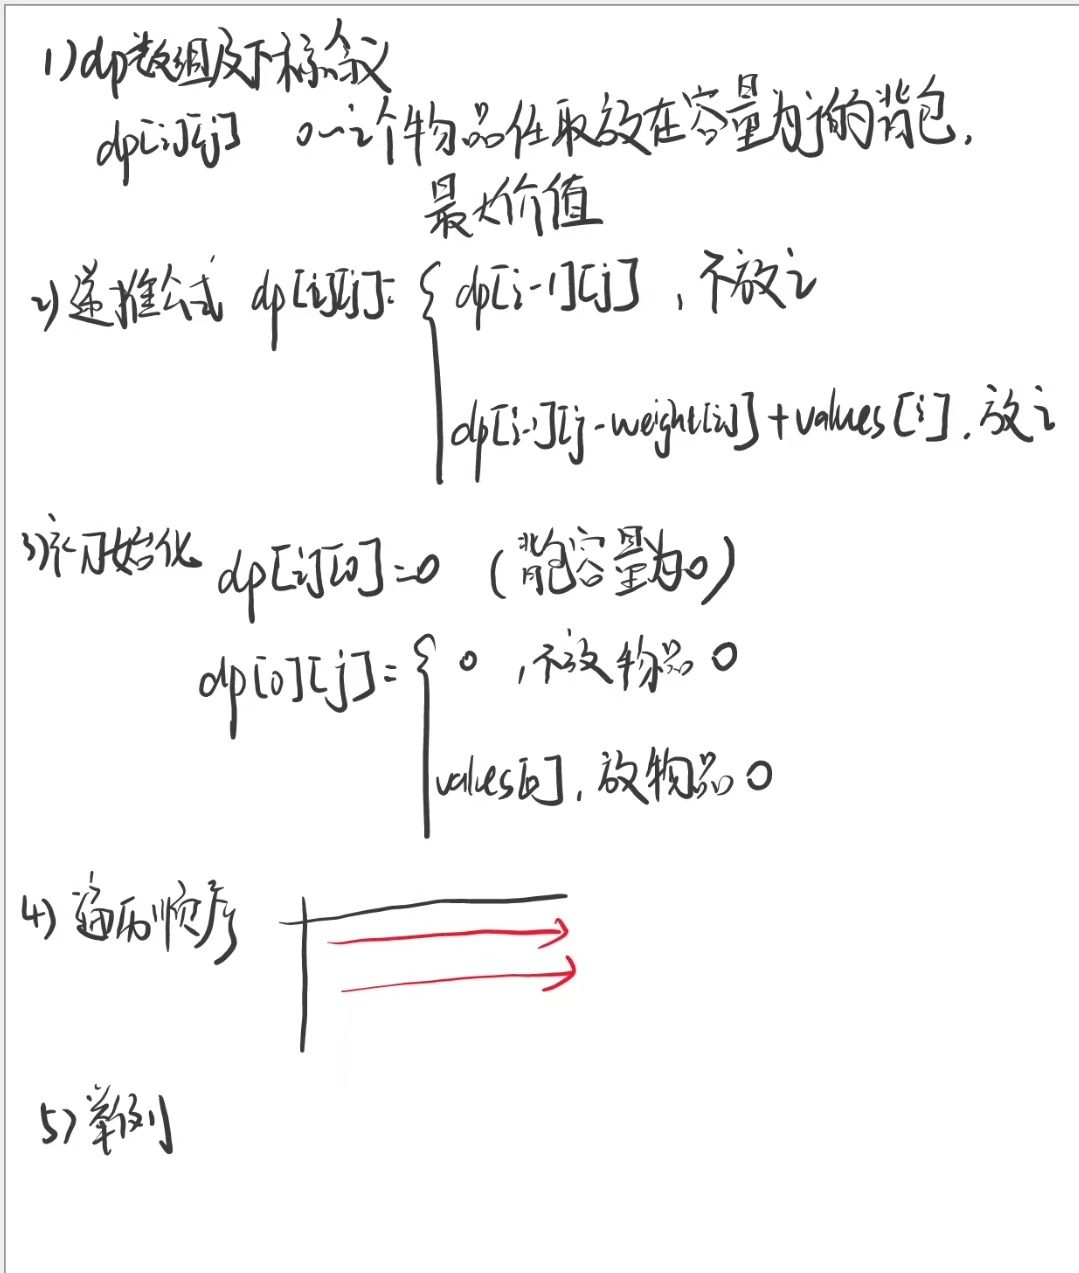 1) dp数组及下标含义
dp[i][j] 0~i个物品任取放在容量为j的背包,
最大价值
2) 递推公式 dp[i][j]= { dp[i-1][j] , 不放i
dp[i-1][j-weight[i]]+values[i], 放i
3) 初始化 dp[i][0]=0 (背包容量为0)
dp[0][j]= { 0 , 不放物品0
values[0], 放物品0
4) 遍历顺序
5) 举例